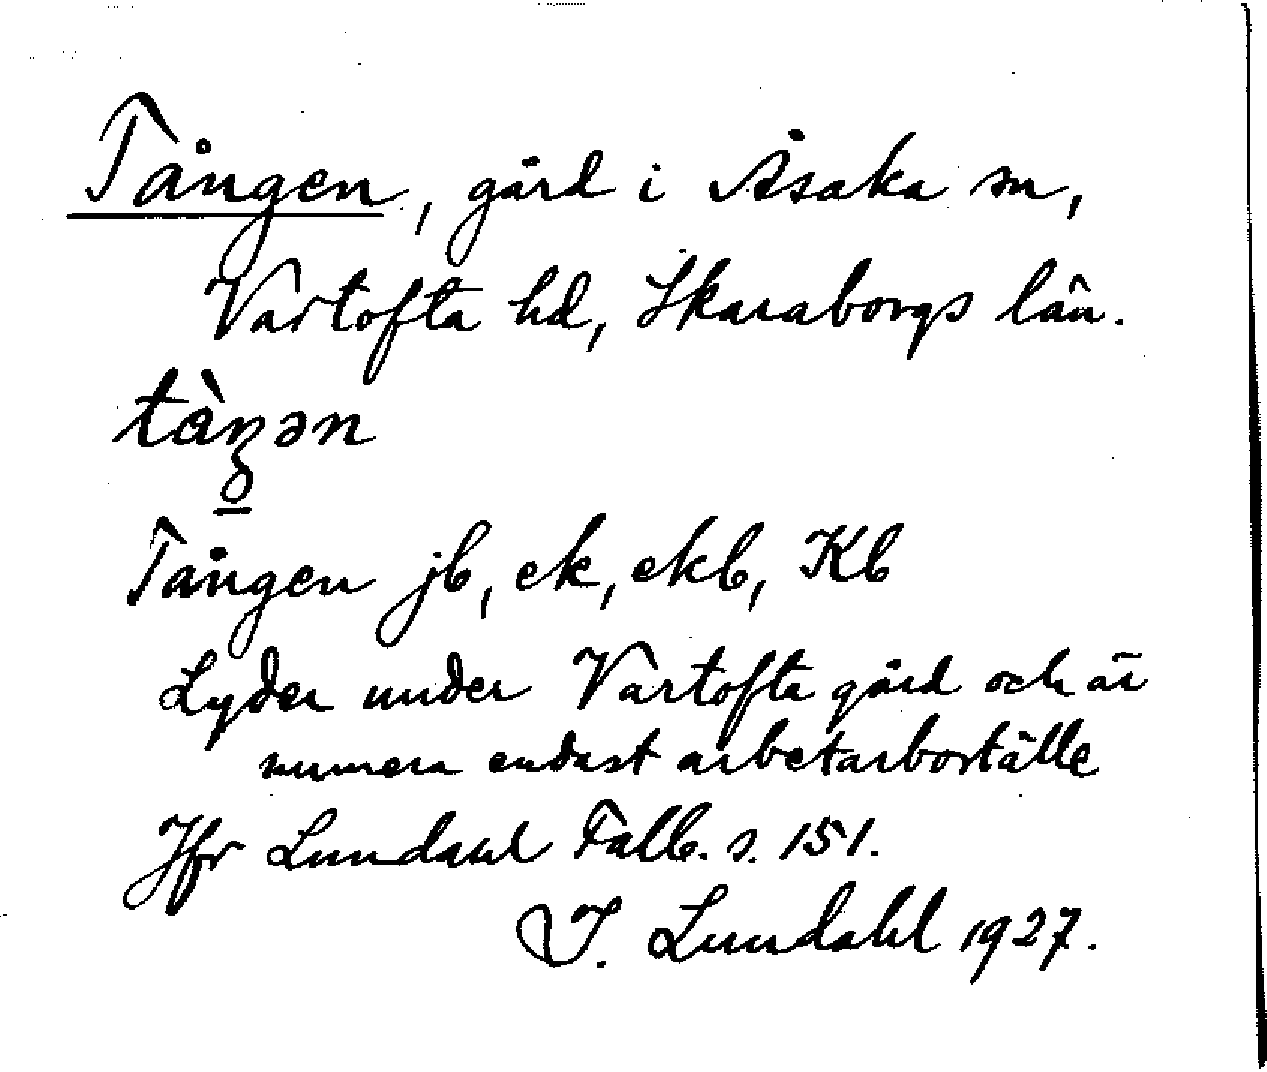 Tången, gård i Åsaka sn,
Vartofta hd, Skaraborgs län.
tàŋən
Tången jb, ek, ekb, Kb
Lyder under Vartofta gård och är
numera endast arbetarboställe
Jfr Lundahl Falb. s. 151.
I. Lundahl 1927.